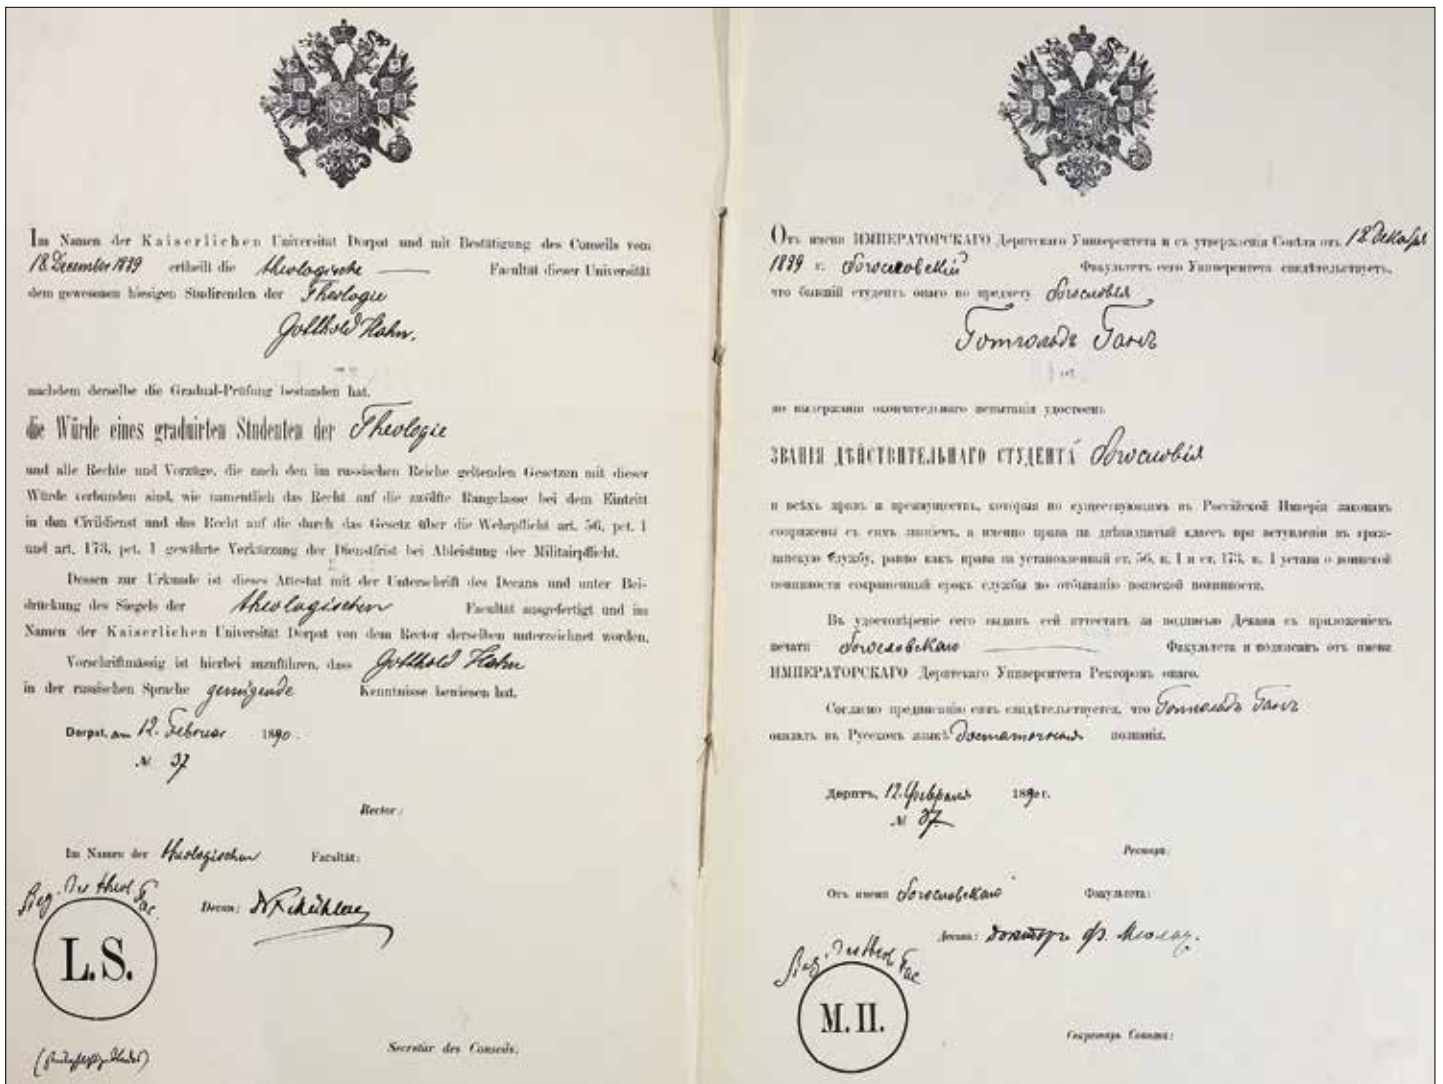 Im Namen der Kaiserlichen Universität Dorpat und mit Bestätigung des Conseils vom
18. December 1889 ertheilt die theologische Facultät dieser Universität
dem gewesenen hiesigen Studirenden der Theologie
Gotthold Hahn.
nachdem derselbe die Gradual-Prüfung bestanden hat.
die Würde eines graduirten Studenten der Theologie
und alle Rechte und Vorzüge, die nach den im russischen Reiche geltenden Gesetzen mit dieser
Würde verbunden sind, wie namentlich das Recht auf die zwölfte Rangclasse bei dem Eintritt
in den Civildienst und das Recht auf die durch das Gesetz über die Wehrpflicht art. 56, pct. 1
und art. 173, pct. 1 gewährte Verkürzung der Dienstfrist bei Ableistung der Militairpflicht.
Dessen zur Urkunde ist dieses Attestat mit der Unterschrift des Decans und unter Bei-
drückung des Siegels der theologischen Facultät ausgefertigt und im
Namen der Kaiserlichen Universität Dorpat von dem Rector derselben unterzeichnet worden.
Vorschriftmässig ist hierbei anzuführen, dass Gotthold Hahn
in der russischen Sprache genügende Kenntnisse bewiesen hat.
Dorpat, am 12. Februar 1890.
№ 37
Rector:
Im Namen der theologischen Facultät:
Sieg. der theol. Fac.
Decan:
L.S.
Secretär des Conseils.
Отъ имени ИМПЕРАТОРСКАГО Дерптскаго Университета и съ утвержденія Совѣта отъ 18 декабря
1889 г. богословскій Факультетъ сего Университета свидѣтельствуетъ,
что бывшій студентъ онаго по предмету богословія
Готгольдъ Ганъ
по выдержаніи окончательнаго испытанія удостоенъ
ЗВАНІЯ ДѢЙСТВИТЕЛЬНАГО СТУДЕНТА богословія
и всѣхъ правъ и преимуществъ, которыя по существующимъ въ Россійской Имперіи законамъ
сопряжены съ симъ званіемъ, а именно права на двѣнадцатый классъ при вступленіи въ граж-
данскую службу, равно какъ права на установленный ст. 56, п. 1 и ст. 173, п. 1 устава о воинской
повинности сокращенный срокъ службы по отбыванію воинской повинности.
Въ удостовѣреніе сего выданъ сей аттестатъ за подписью Декана съ приложеніемъ
печати богословскаго Факультета и подписанъ отъ имени
ИМПЕРАТОРСКАГО Дерптскаго Университета Ректоромъ онаго.
Согласно предписанію симъ свидѣтельствуется, что Готгольдъ Ганъ
оказалъ въ Русскомъ языкѣ достаточныя познанія.
Дерптъ, 12. Февраля 1890 г.
№ 37.
Ректоръ:
Отъ имени богословскаго Факультета:
Sieg. der theol. Fac.
Деканъ: докторъ Ф.
М.П.
Секретарь Совѣта: